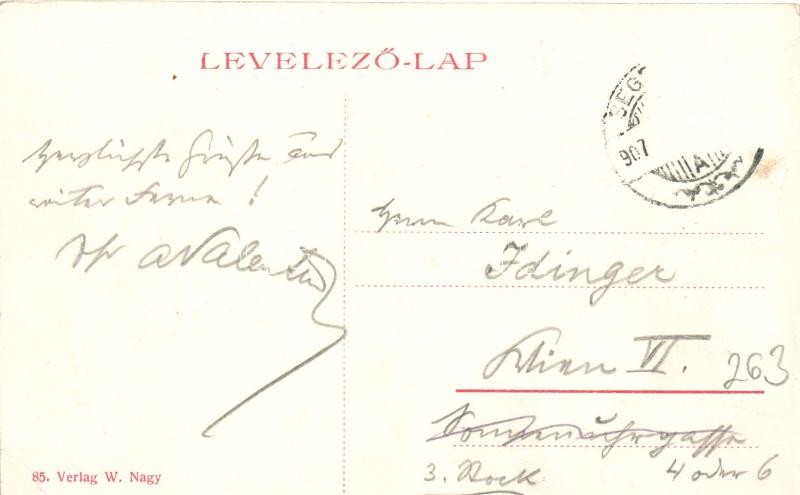 LEVELEZŐ-LAP
SEG
907
A
Herzlichste Grüße aus
weiter Ferne!
Ihr A Valentin
Herrn Karl
Idinger
Wien VI.
263
Sonnenuhrgasse
3. Stock 4 oder 6
85. Verlag W. Nagy